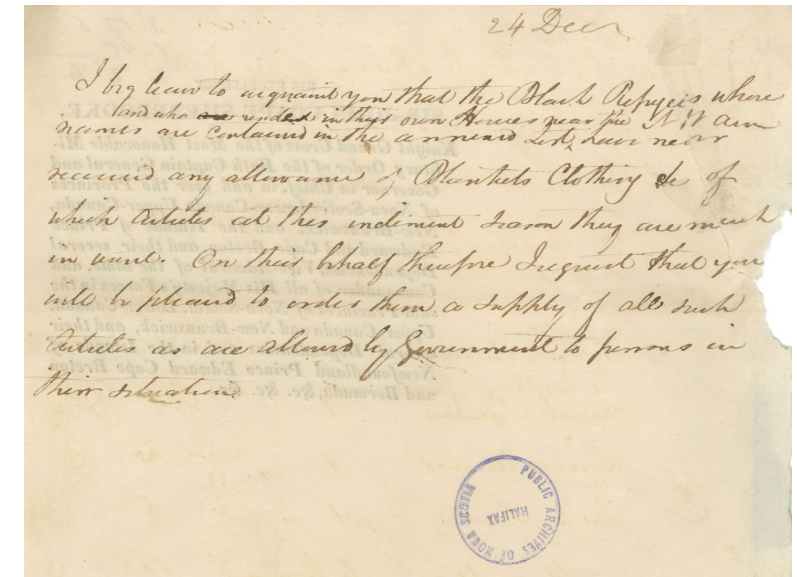 24 Decr
I beg leave to acquaint you that the Black Refugees whose
and who are resident in their own Houses near the N W Arm
names are contained in the annexed List, have never
received any allowance of Blankets Clothing &c of
which articles at this inclement season they are much
in want. On their behalf therefore I request that you
will be pleased to order them a supply of all such
Articles as are allowed by Government to persons in
their situation
PUBLIC ARCHIVES OF NOVA SCOTIA
HALIFAX